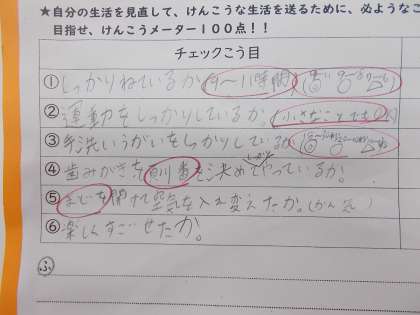 ★自分の生活を見直して、けんこうな生活を送るために、必ようなこ
目指せ、けんこうメーター１００点！！
チェックこう目
①しっかりねているか(9〜11時間)
②運動をしっかりしているか。(小さなことでもOK)
③手洗いうがいをしっかりしているか
④歯みがきを順番を決めてやっているか!
しっかり
⑤まどを開けて空気を入れ変えたか。(かん気)
⑥楽しくすごせたか。
ふ